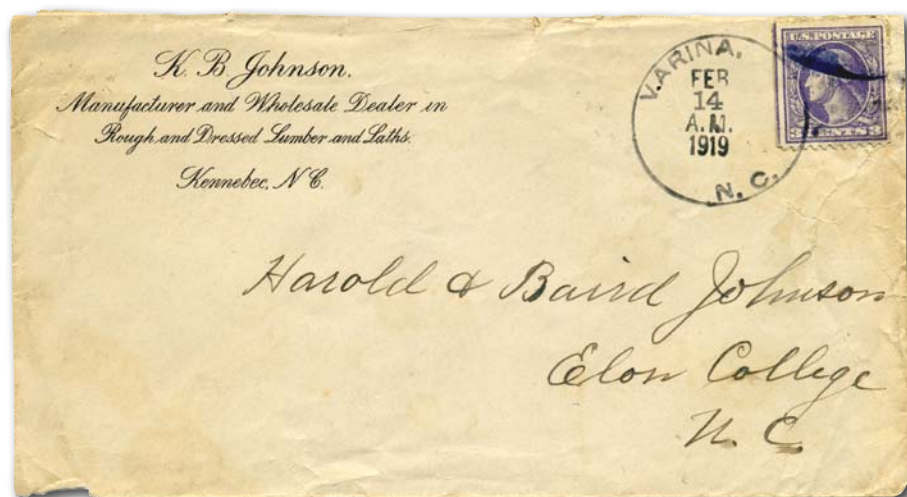 K. B. Johnson.
Manufacturer and Wholesale Dealer in
Rough and Dressed Lumber and Laths.
Kennebec, N C.
VARINA,
FEB
14
A.M.
1919
N. C.
U.S. POSTAGE
3 CENTS 3
Harold & Baird Johnson
Elon College
N. C